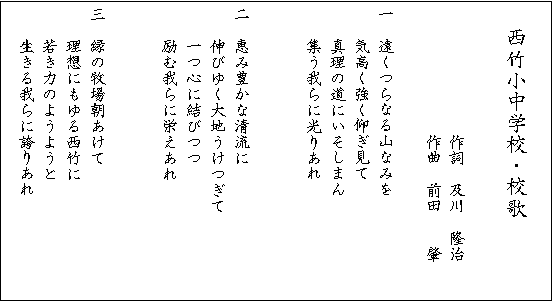 西竹小中学校・校歌
作詞　及川　隆治
作曲　前田　肇
一　遠くつらなる山なみを
気高く強く仰ぎ見て
真理の道にいそしまん
集う我らに光りあれ
二　恵み豊かな清流に
伸びゆく大地うけつぎて
一つ心に結びつつ
励む我らに栄えあれ
三　緑の牧場朝あけて
理想にもゆる西竹に
若き力のようようと
生きる我らに誇りあれ